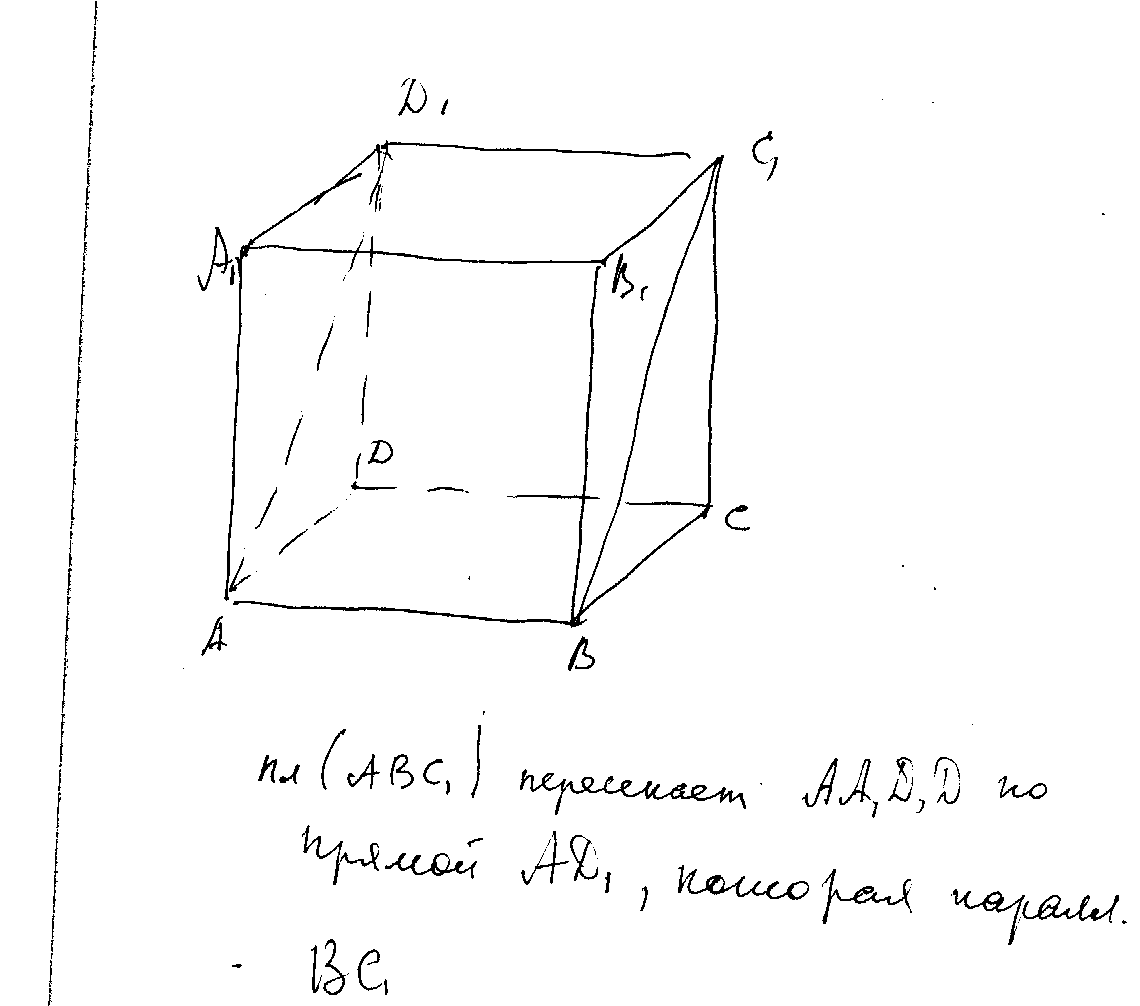 D₁
C₁
A₁
B₁
D
C
A
B
пл (ABC₁) пересекает AA₁D₁D по
прямой AD₁, которая паралл.
BC₁